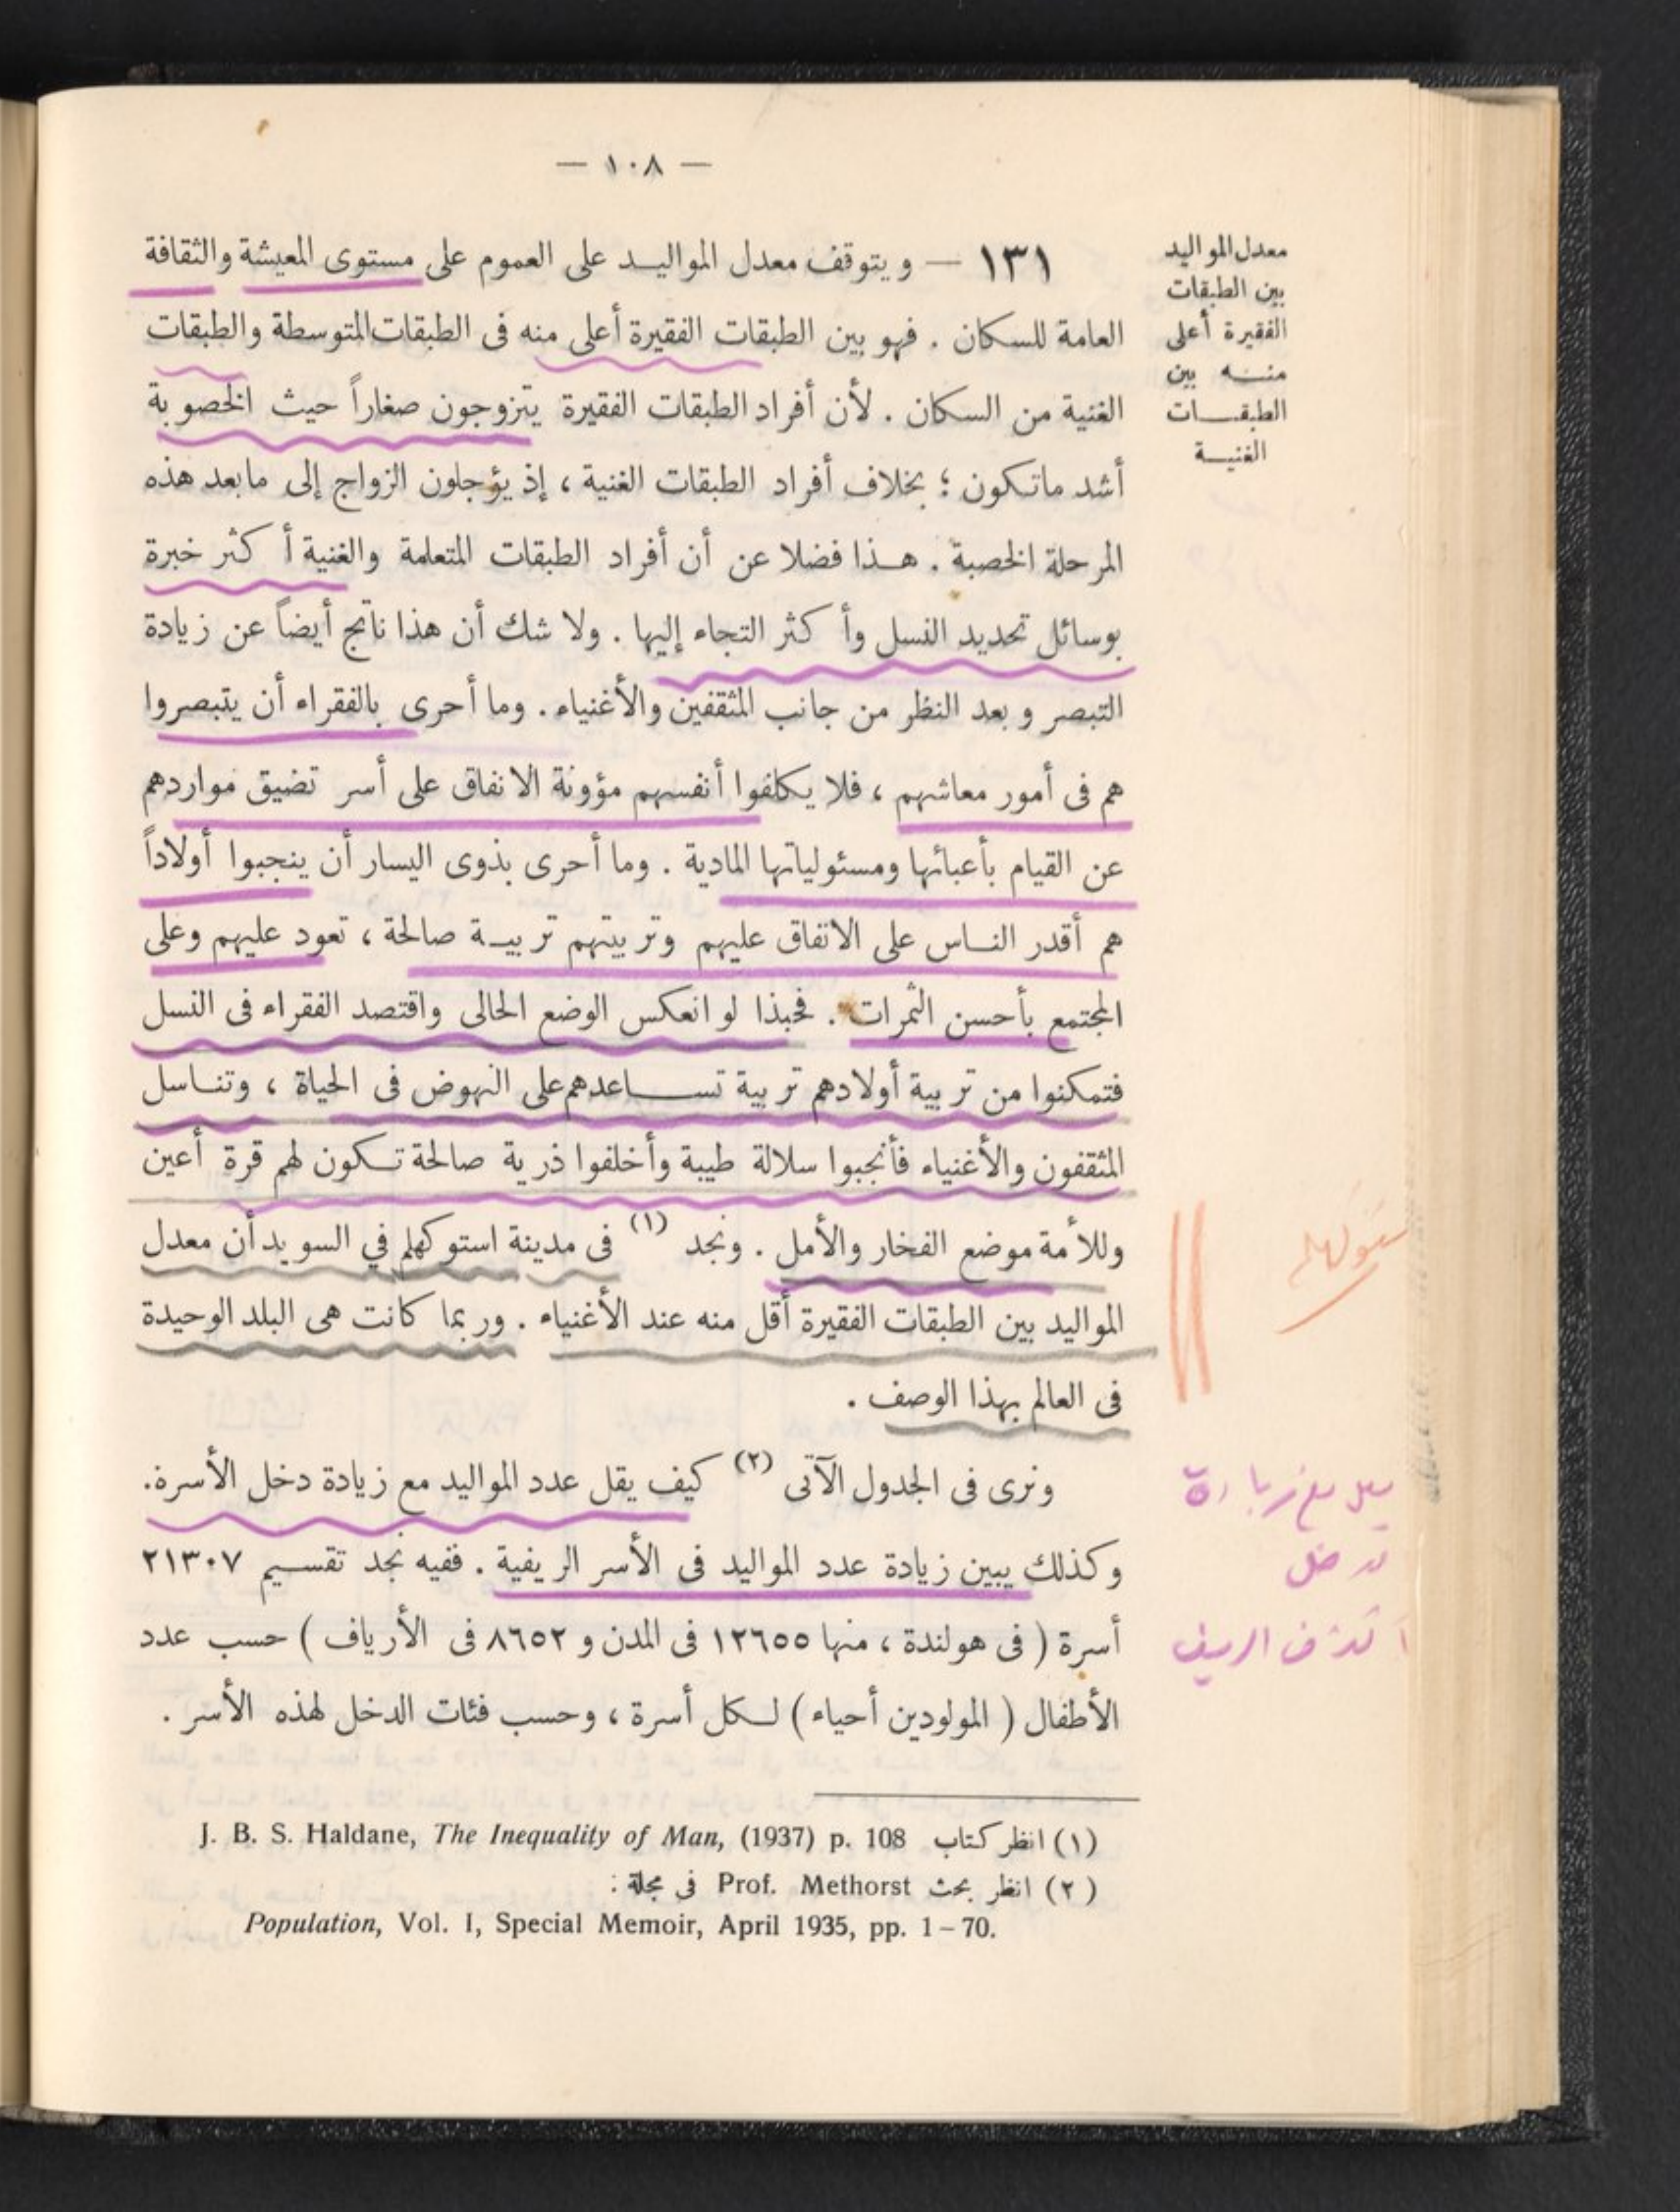 — ١٠٨ —
معدل المواليد
بين الطبقات
الفقيرة أعلى
منه بين
الطبقات
الغنية
١٣١ — ويتوقف معدل المواليد على العموم على مستوى المعيشة والثقافة
العامة للسكان . فهو بين الطبقات الفقيرة أعلى منه فى الطبقات المتوسطة والطبقات
الغنية من السكان . لأن أفراد الطبقات الفقيرة يتزوجون صغاراً حيث الخصوبة
أشد ماتكون ؛ بخلاف أفراد الطبقات الغنية ، إذ يؤجلون الزواج إلى مابعد هذه
المرحلة الخصبة . هذا فضلا عن أن أفراد الطبقات المتعلمة والغنية أكثر خبرة
بوسائل تحديد النسل وأكثر التجاء إليها . ولا شك أن هذا ناتج أيضاً عن زيادة
التبصر وبعد النظر من جانب المثقفين والأغنياء . وما أحرى بالفقراء أن يتبصروا
هم فى أمور معاشهم ، فلا يكلفوا أنفسهم مؤونة الانفاق على أسر تضيق مواردهم
عن القيام بأعبائها ومسئولياتها المادية . وما أحرى بذوى اليسار أن ينجبوا أولاداً
هم أقدر الناس على الانفاق عليهم وتربيتهم تربية صالحة ، تعود عليهم وعلى
المجتمع بأحسن الثمرات . فحبذا لو انعكس الوضع الحالى واقتصد الفقراء فى النسل
فتمكنوا من تربية أولادهم تربية تساعدهم على النهوض فى الحياة ، وتناسل
المثقفون والأغنياء فأنجبوا سلالة طيبة وأخلفوا ذرية صالحة تكون لهم قرة أعين
وللأمة موضع الفخار والأمل . ونجد (١) فى مدينة استوكهلم في السويد أن معدل
المواليد بين الطبقات الفقيرة أقل منه عند الأغنياء . وربما كانت هى البلد الوحيدة
فى العالم بهذا الوصف .
ونرى فى الجدول الآتى (٢) كيف يقل عدد المواليد مع زيادة دخل الأسرة.
وكذلك يبين زيادة عدد المواليد فى الأسر الريفية . ففيه نجد تقسيم ٢١٣٠٧
أسرة ( فى هولندة ، منها ١٢٦٥٥ فى المدن و ٨٦٥٢ فى الأرياف ) حسب عدد
الأطفال ( المولودين أحياء ) لكل أسرة ، وحسب فئات الدخل لهذه الأسر .
(١) انظر كتاب J. B. S. Haldane, The Inequality of Man, (1937) p. 108
(٢) انظر بحث Prof. Methorst فى مجلة :
Population, Vol. I, Special Memoir, April 1935, pp. 1–70.